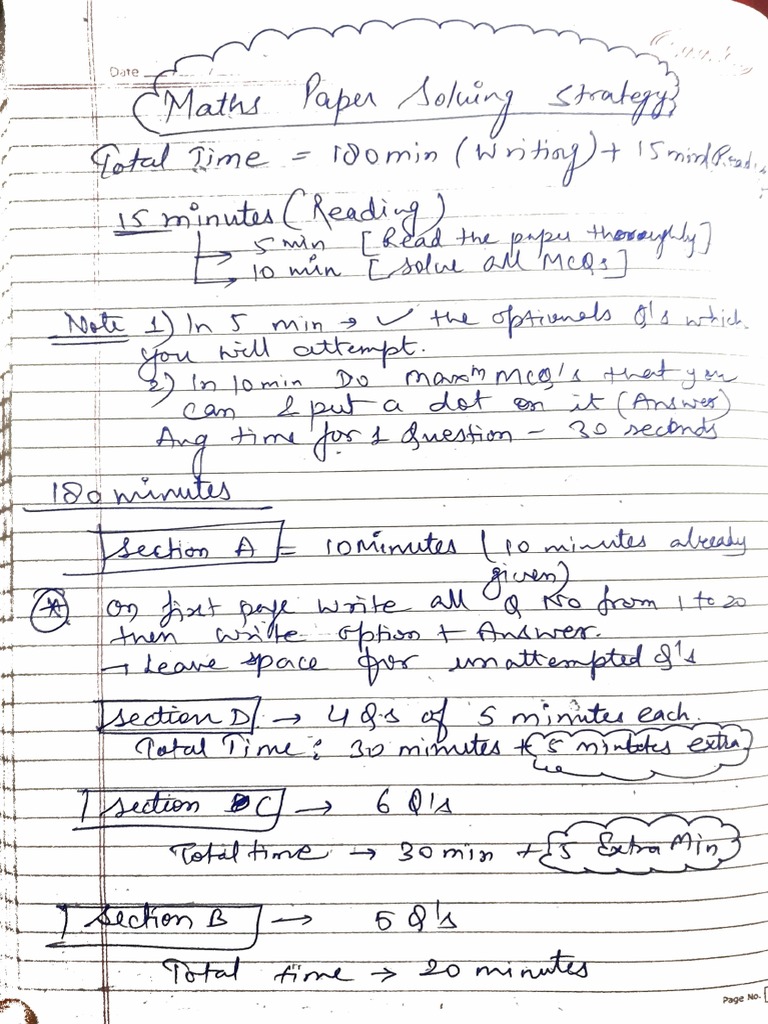 Date
Maths Paper Solving Strategy
Total Time = 180 min (Writing) + 15 min (Readin
15 minutes (Reading)
→ 5 min [Read the paper thoroughly]
→ 10 min [solve all MCQs]
Note 1) In 5 min → ✓ the optionals Q's which
you will attempt.
2) In 10 min Do maxᵐ MCQ's that you
can & put a dot on it (Answer)
Avg time for 1 Question - 30 seconds
180 minutes
Section A = 10 Minutes (10 minutes already
given)
* On first page write all Q No from 1 to 20
then write option + Answer.
→ Leave space for unattempted Q's
Section D → 4 Q.s of 5 minutes each.
Total Time : 30 minutes + 5 minutes extra
Section C → 6 Q's
Total time → 30 min + 5 Extra Min
Section B → 5 Q's
Total time → 20 minutes
Page No.